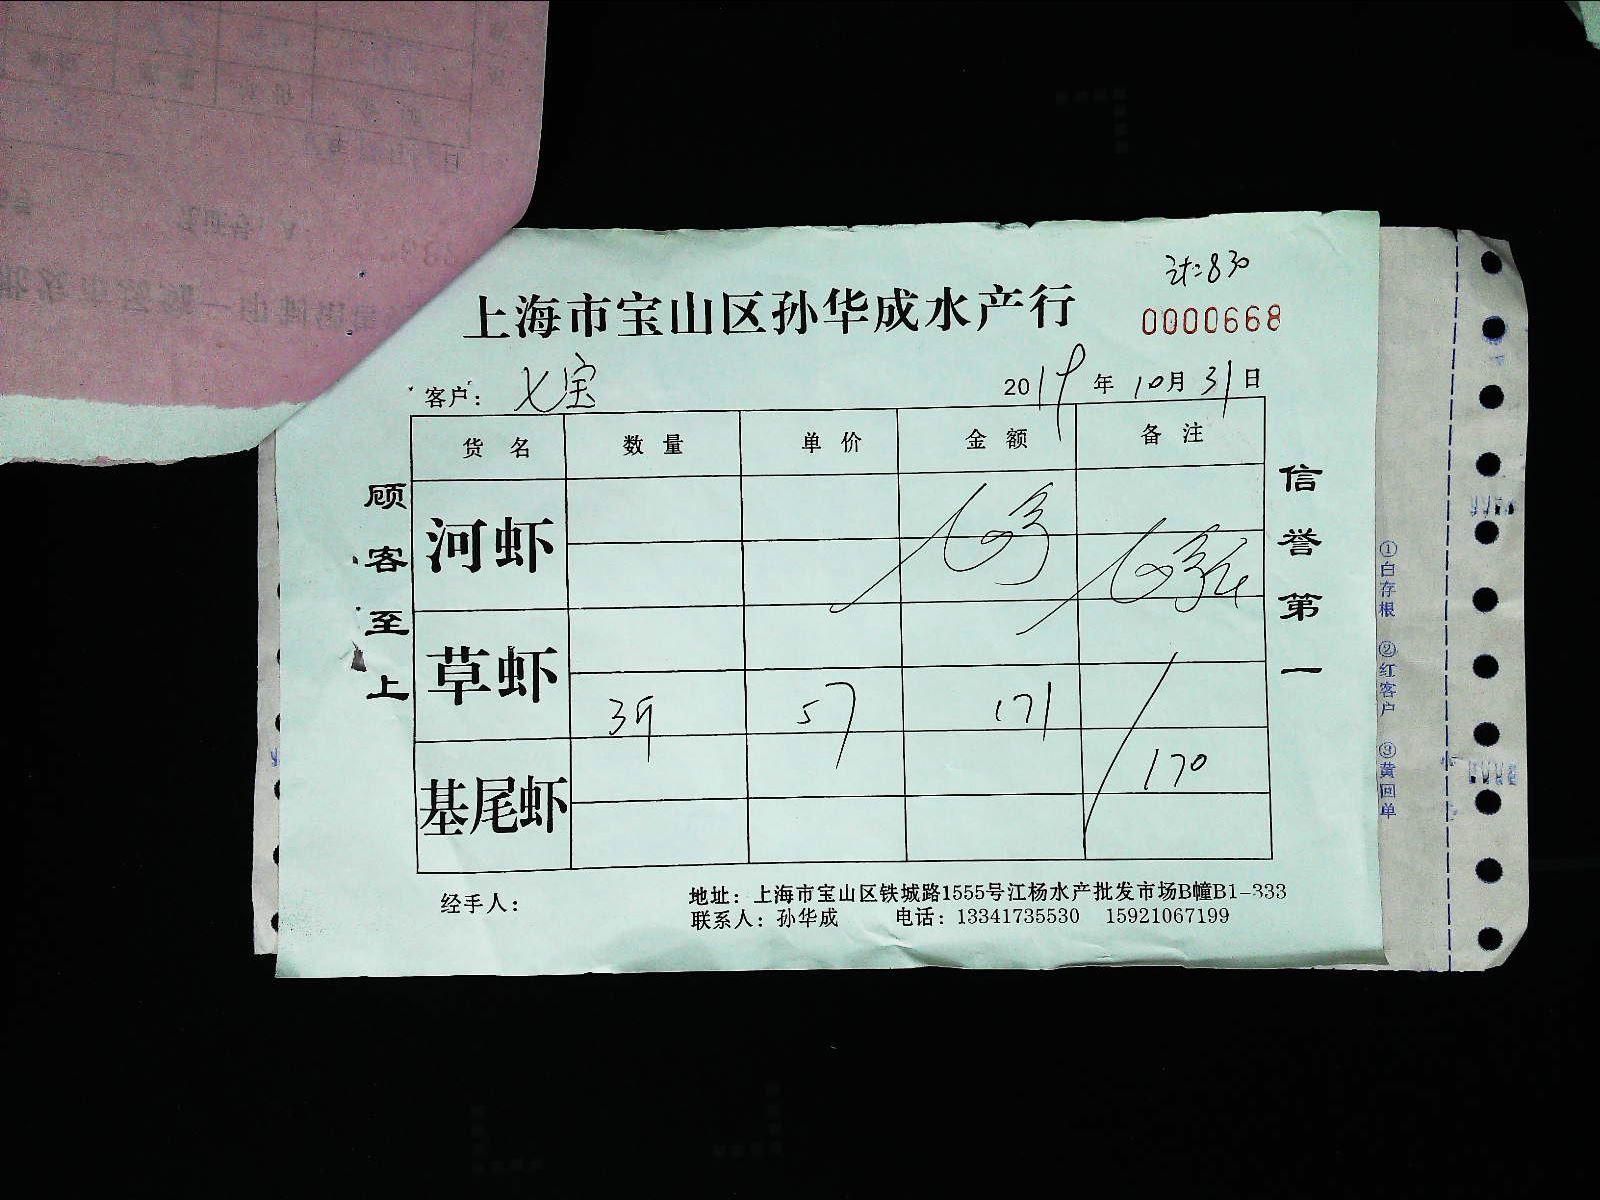 计:830
上海市宝山区孙华成水产行
0000668
客户: 七宝
2019 年 10月 31日
货名 数量 单价 金额 备注
河虾
草虾
3斤 57 171
170
基尾虾
顾客至上
信誉第一
经手人:
地址: 上海市宝山区铁城路1555号江杨水产批发市场B幢B1-333
联系人: 孙华成 电话: 13341735530 15921067199
①白存根 ②红客户 ③黄回单